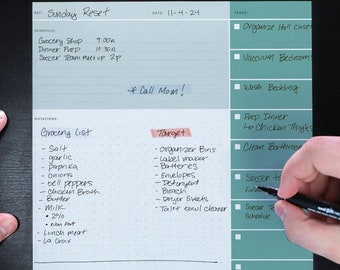 Sunday Reset
DATE:
11-4-24
TASKS:
SCHEDULE:
Grocery Shop 9:00a
Dinner Prep 10:30a
Soccer Team pick up 2p
* Call Mom!
NOTATIONS:
Grocery List
- Salt
- garlic
- paprika
- onions
- bell peppers
- Chicken Broth
- Butter
- Milk
• 2%
• Non Fat
- Lunch meat
- La Croix
Target
- Organizer Bins
- Label maker
- Batteries
- Envelopes
- Detergent
- Bleach
- Dryer Sheets
- Toilet bowl cleaner
Organize Hall closet
Vacuum Bedrooms
Wash Bedding
Prep Dinner
↳ Chicken Thighs
Clean Bathroom
Soccer
Soccer
Schedule